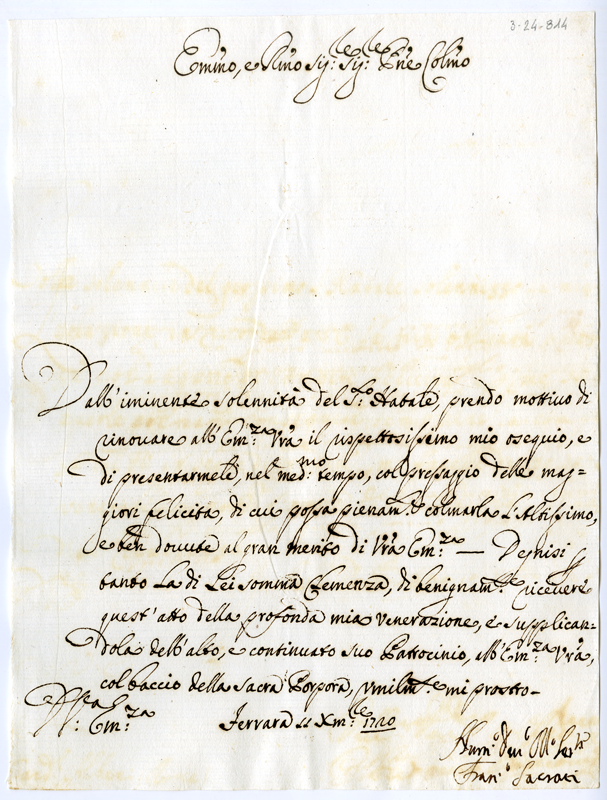 3-24-814
Emi͠no, e R͠mo Sig:ʳᵉ Sig:ʳᵉ P͠ne Col͠mo
Dall'iminente solennità del S.ᵗᵒ Natale, prendo mottivo di
rinovare all'Em:ᶻᵃ Vr̃a il rispettosissimo mio osequio, e
di presentarmele, nel med:ᵐᵒ tempo, col pressaggio delle mag=
giori felicità, di cui possa pienam:ᵗᵉ colmarla L'Altissimo,
e ben dovute al gran merito di Vr̃a Em:ᶻᵃ — Degnisi
tanto La di Lei somma Clemenza, di benignam:ᵗᵉ ricevere
quest'atto della profonda mia venerazione, e supplican=
dola dell'alto, e continuato suo Patrocinio, all'Em:ᶻᵃ Vr̃a,
col baccio della Sacra Porpora, umilm:ᵗᵉ mi prostro-
Em:ᶻᵃ Ferrara Xm:ᵇʳᵉ 1720
Hum:ᵒ
Fran:ᵒ Sacrati